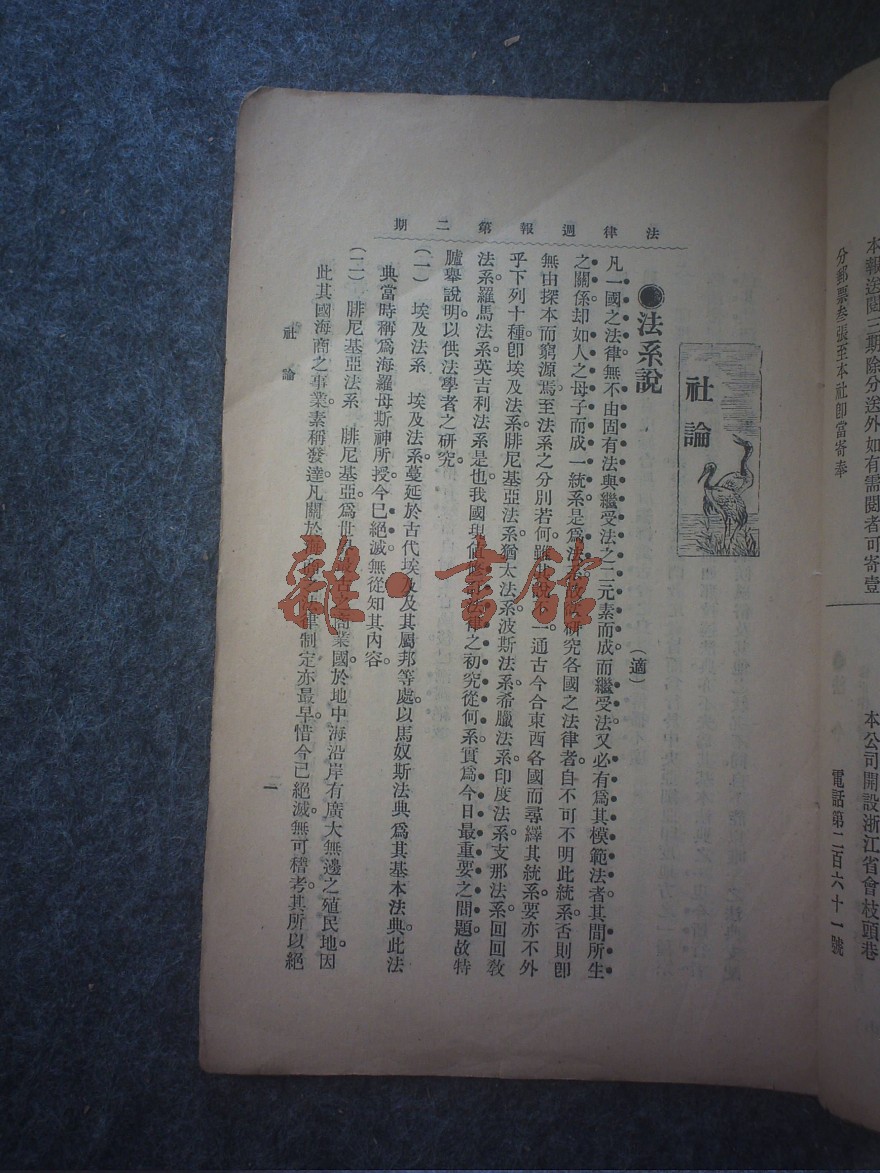 本報送閱三期除分送外如有需閱者可寄壹
分郵票叁張至本社卽當寄奉
本公司開設浙江省會枝頭巷
電話第二百六十一號
法律週報第二期
社論
●法系說
(適)
凡一國之法律無不由固有法與繼受法之二元素而成而繼受法又必有爲其模範法者其間所生
之關係却如人之母子而成一統系是爲法研究各國之法律者自不可不明此統系否則卽
無由探本而窮源焉至法系之分別若何雖一通古今合東西各國而尋繹其統系要亦不外
乎下列十種卽埃及法系腓尼基亞法系猶太法系波斯法系希臘法系印度法系支那法系回回敎
法系羅馬法系英吉利法系是也我國現值律之初究從何系實爲今日最重要之問題故特
臚舉說明以供法學者之研究
(一) 埃及法系 埃及法系蔓延於古代埃及及其屬邦等處以馬奴斯法典爲其基本法典此法
典當時稱爲海羅母斯神所授今已絕滅無從知其內容
(二) 腓尼基亞法系 腓尼基亞爲世古之商業國於地中海沿岸有廣大無邊之殖民地因
此其國海商之事業素稱發達凡關於律制定亦最早惜今已絕滅無可稽考其所以絕
社論
二
雜·書館